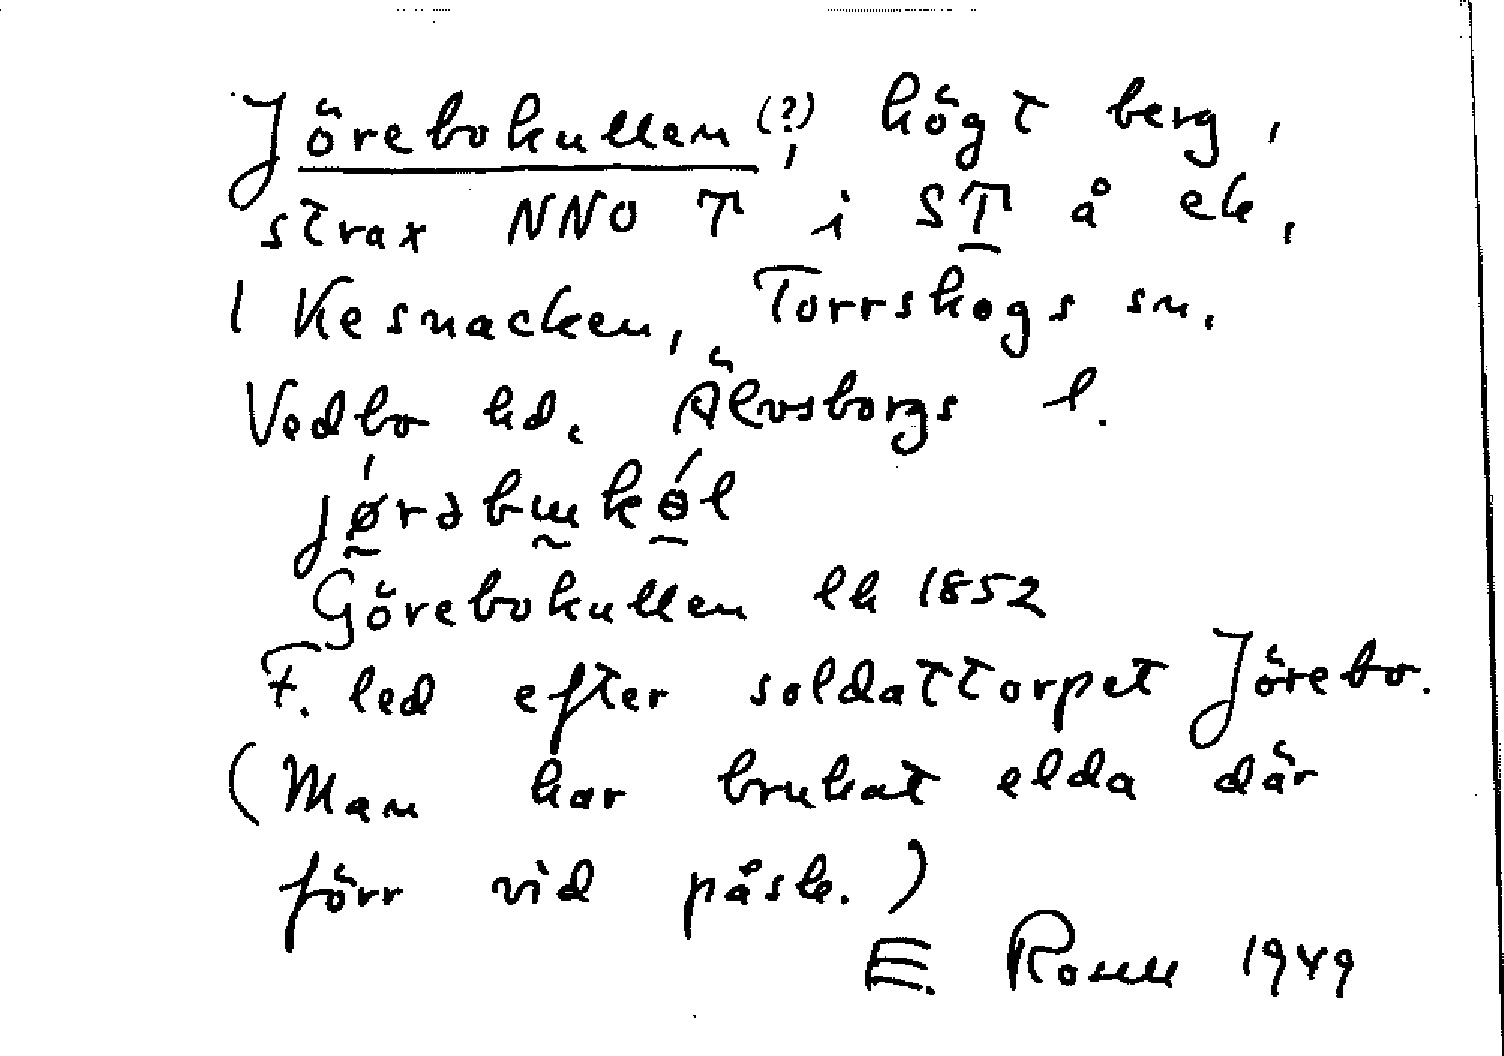 Jörebokullen (?), högt berg,
strax NNO T i ST å ek,
l Kesnacken, Torrskogs sn.
Vedbo hd. Älvsborgs l.
Görebokullen lk 1852
F. led efter soldattorpet Jörebo.
(Man har brukat elda där
förr vid påsk.)
E. 1949